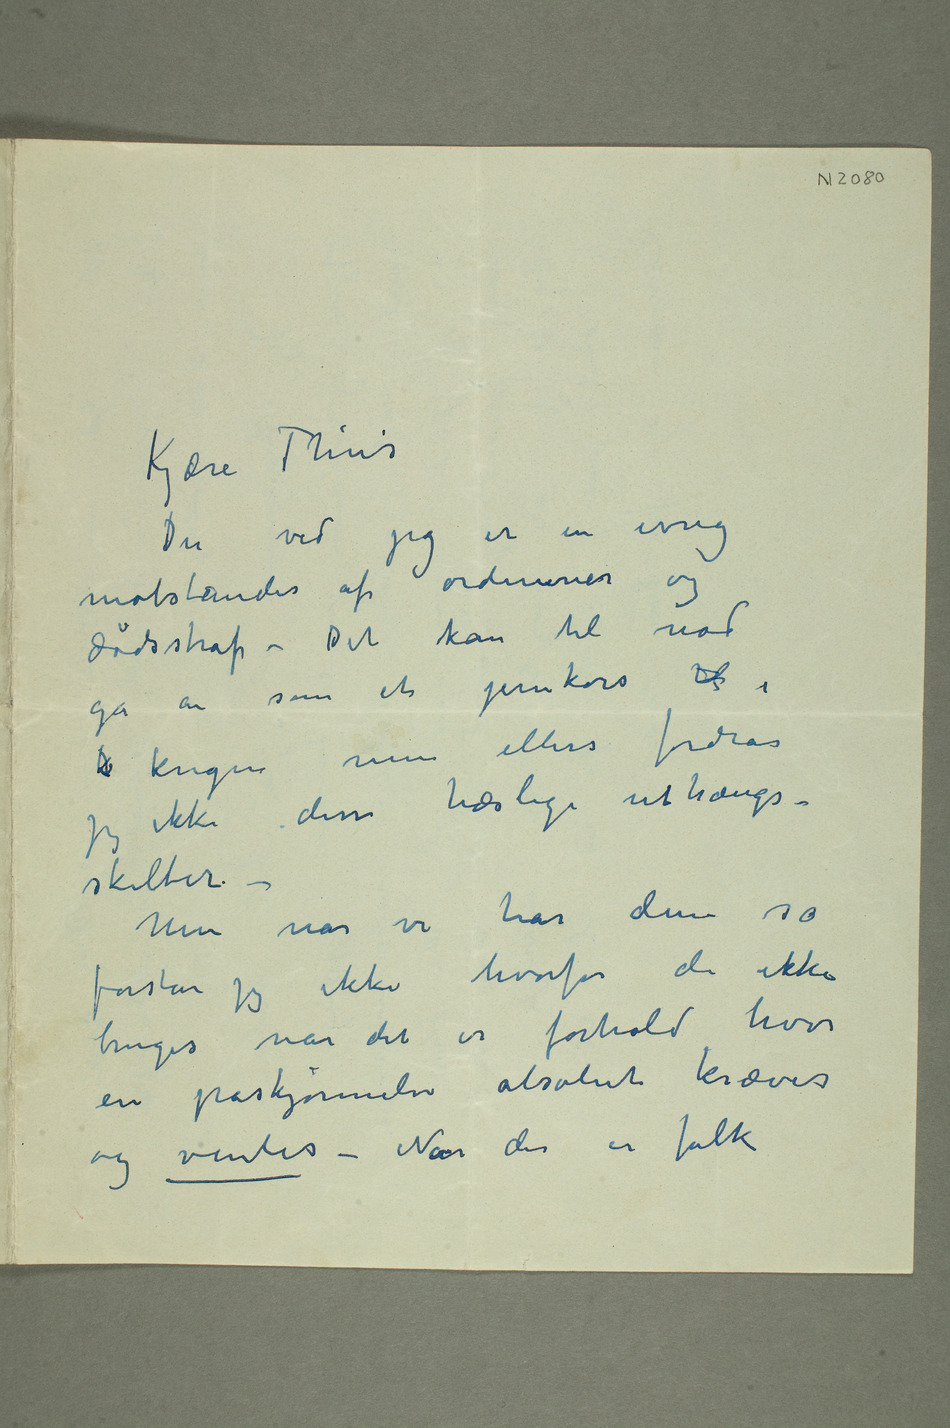 N 2080
Kjære Thiis
Du ved jeg er en ivrig
motstander af ordener og
dødsstraf – Det kan til nød
gå an som et jernkors i
krigen men ellers fordras
jeg ikke disse hæslige uthængs-
skilter –
Men når vi har dem så
forstår jeg ikke hvorfor de ikke
bruges når det er forhold hvor
en påskjønnelse absolut kræves
og ventes – Når der er folk